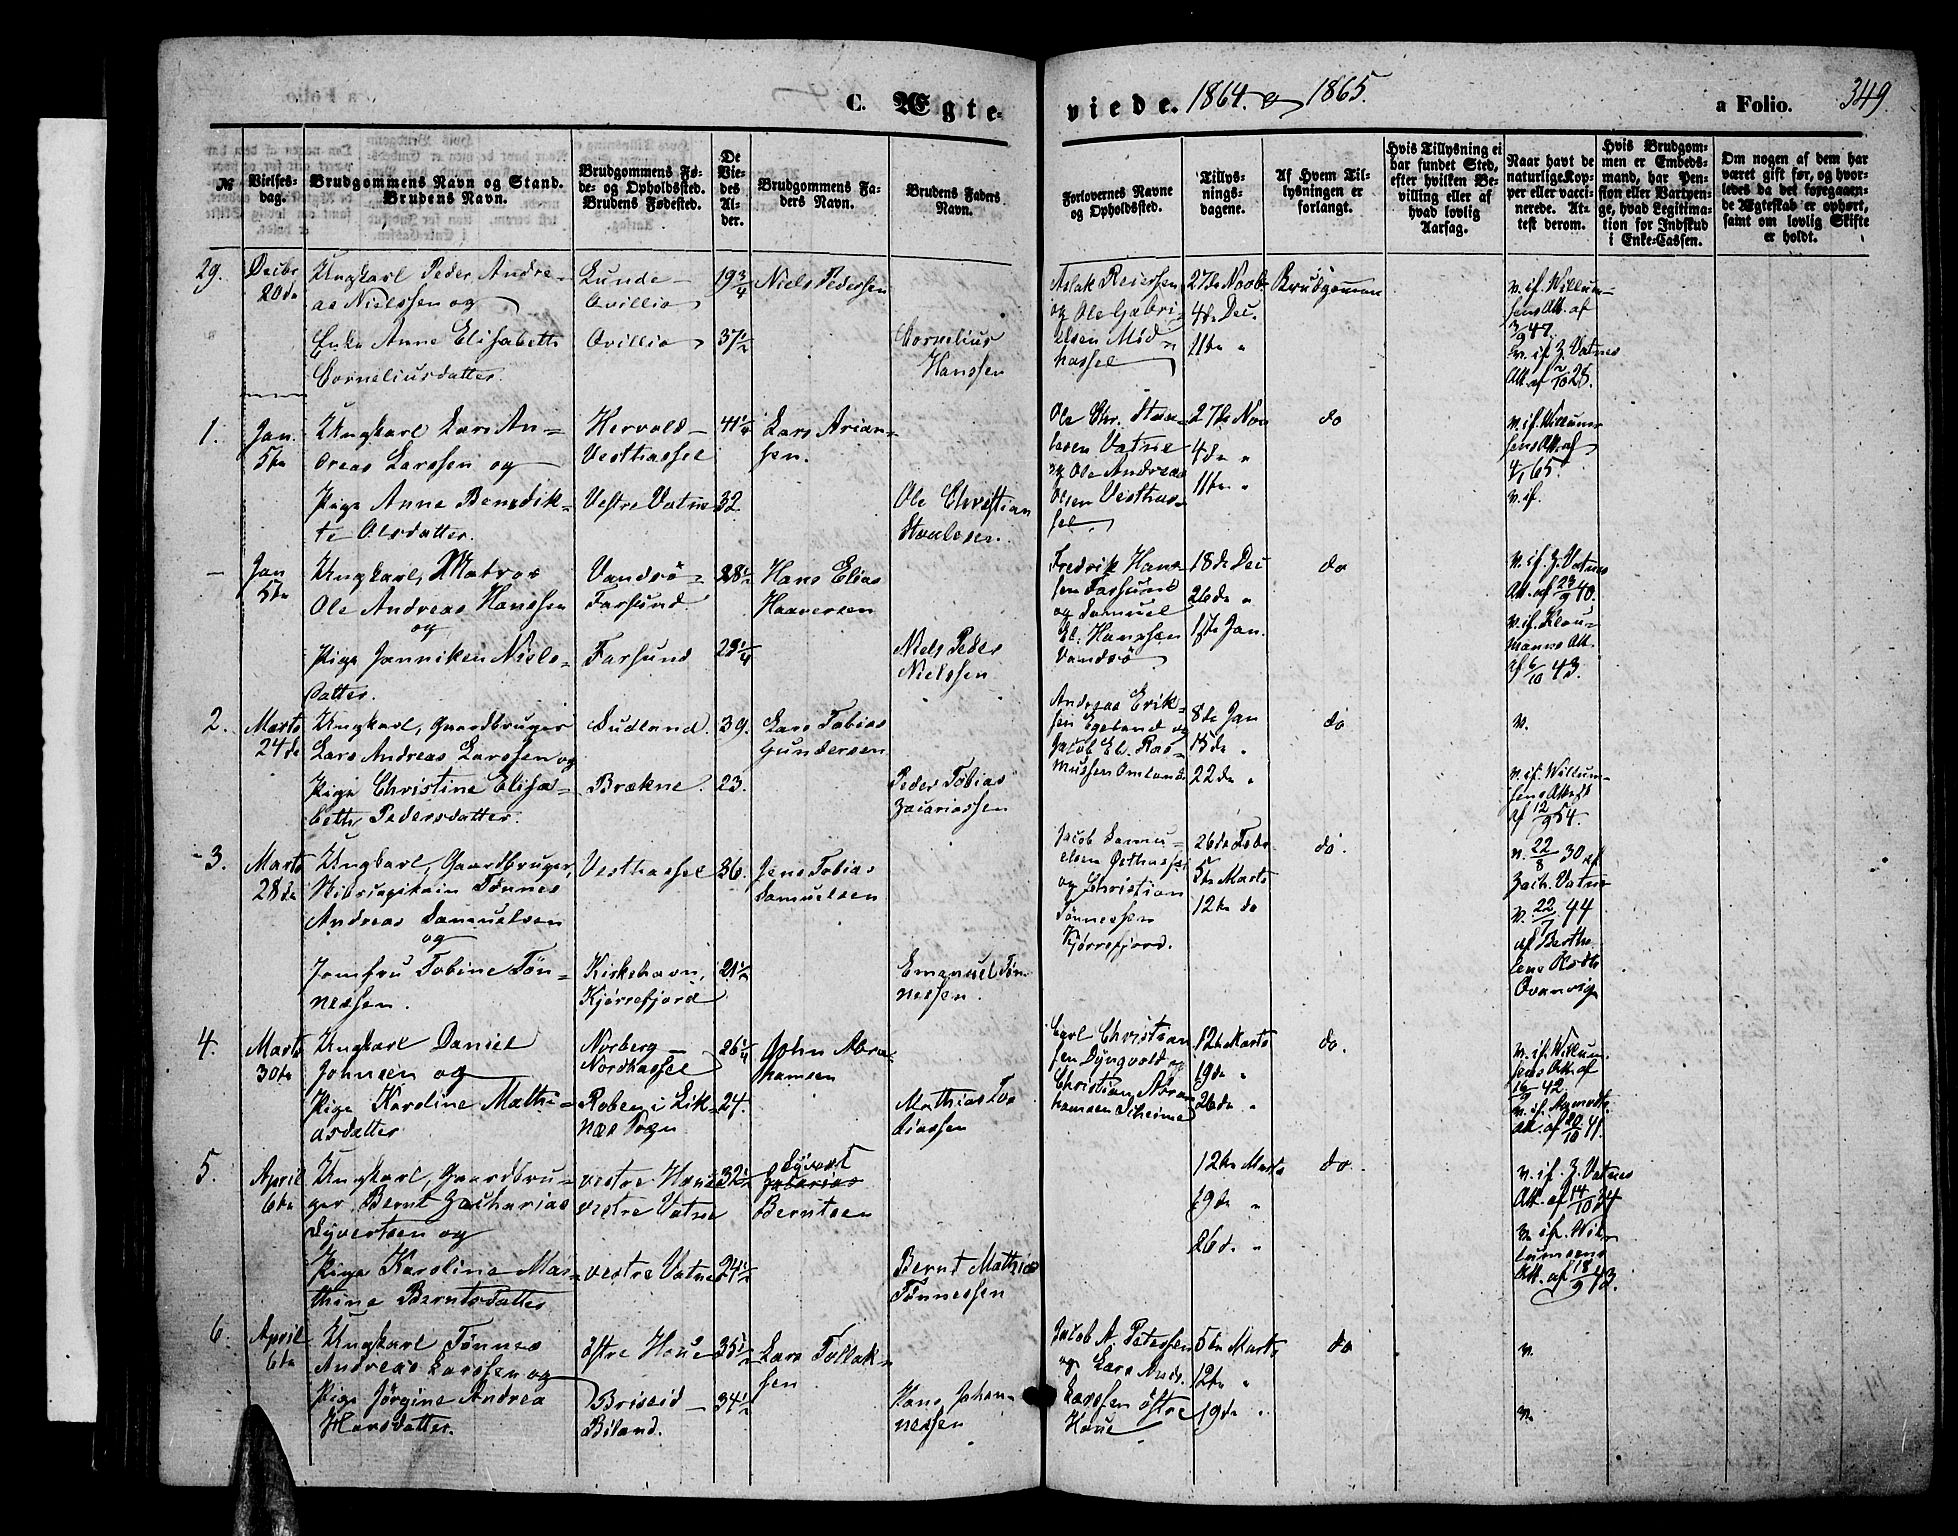 C. Ægte-
viede. 1864 & 1865.
a Folio. 349
№
Vielses-
dag.
Brudgommens Navn og Stand.
Brudens Navn.
Brudgommens Fø-
de- og Opholdssted.
Brudens Fødested.
De
Vie-
des
Al-
der.
Brudgommens Fa-
ders Navn.
Brudens Faders
Navn.
Forlovernes Navne
og Opholdssted.
Tillys-
nings-
dagene.
Af Hvem Til-
lysningen er
forlangt.
Hvis Tillysning ei
har fundet Sted,
efter hvilken Be-
villing eller af
hvad lovlig
Aarsag.
Naar havt de
naturlige Kop-
per eller vacci-
nerede. At-
test derom.
Hvis Brudgom-
men er Embeds-
mand, har Pen-
sion eller Vartpen-
ge, hvad Legitima-
tion for Indskud
i Enke-Cassen.
Om nogen af dem har
været gift før, og hvor-
ledes da det foregaaen-
de Ægteskab er ophørt,
samt om lovlig Skifte
er holdt.
29.
Decbr
20de
Ungkarl Peder Andre-
as Nielssen og
Enke Anne Elisabeth
Corneliusdatter.
Lunde-
Ovillio
Ovillio
19 3/4
37 1/2
Niels Pedersen
Cornelius
Hanssen
Aslak Reierssen
og Ole Gabri-
elsen Mid-
hassel
27de Novb.
4de Dec.
11te "
Brudgommen
v. if. Willum-
sens Att. af
3/9 47.
v. if. Z. Vatnes
Att. af 2/10 28.
1.
Jan.
5te
Ungkarl Lars An-
dreas Larssen og
Pige Anne Benedik-
te Olsdatter.
Hervold-
Vesthassel
Vestre Vatne
41 1/4
32.
Lars Arian-
sen.
Ole Christian
Staalesen.
Ole Chr. Staa-
lesen Vatne
og Ole Andreas
Olsen Vesthas-
sel
27de Nov
4de "
11te "
do
v. if. Willum-
sens Att. af
4/1 65.
v. if.
–
Jan
5te
Ungkarl, Matros
Ole Andreas Hanssen
og
Pige Janniken Niels-
datter.
Vandsö-
Farsund.
Farsund
28 1/2
29 1/4
Hans Elias
Haaversen
Niels Peder
Nielssen
Fredrik Hans-
sen Farsund
og Samuel
El. Hanssen
Vandsö
18de Dec
26de "
1ste Jan.
do
v. if. Z. Vatnes
Att. af 23/9 40.
v. if. Klou-
manns Att.
af 6/10 43.
2.
Marts
24de
Ungkarl, Gaardbruger
Lars Andreas Larssen og
Pige Christine Elisa-
beth Pedersdatter.
Sudland.
Brækne.
39.
23.
Lars Tobias
Gundersen
Peder Tobias
Zacariassen
Andreas Erik-
sen Egeland og
Jacob El. Ras-
mussen Omland
8de Jan
15de "
22de "
do
v.
v. if. Willum-
sens Att.
af 12/9 54.
3.
Marts
28de
Ungkarl, Gaardbruger,
Tønnes
Andreas Samuelsen
og
Jomfru Tobine Tön-
nessen.
Vesthassel
Kirkehavn,
Kjörrefjord
36.
21 1/2
Jens Tobias
Samuelsen
Emanuel Tön-
nessen.
Jacob Samu-
elsen Østhassel
og Christian
Tönnessen
Kjörrefjord.
26de Febr
5te Marts
12te do
do.
v. 22/8 30 af
Zach. Vatne
v. 22/7 44
af Berthe
Lene
4.
Marts
30te
Ungkarl Daniel
Johnsen og
Pige Karoline Mathi-
asdatter
Norberg-
Nordhassel
Roben i Lik-
nes Sogn
26 1/4
24.
John Abra-
hamsen
Mathias To-
biassen
Carl Christian-
sen Dyngvold og
Christian Abra-
hamsen
12te Marts
19de "
26de "
do.
v. if. Willum-
sens Att. af
16/9 42.
Att. af 20/10 41.
5.
April
6te
Ungkarl, Gaardbru-
ger, Bernt Zacharias
Syvertsen og
Pige Karoline Mar-
thine Berntsdatter
vestre Houe
vestre Vatne
vestre Vatne
32 1/2
24 1/2
Syvert
Berntsen
Bernt Mathias
Tönnessen
12te Marts
19de "
26de "
do
v. if. Z. Vatnes
Att. af 14/10 34
v. if. Wil-
lumsens
Att. af 18/9 43.
6.
April
6te
Ungkarl Tønnes
Andreas Larssen og
Pige Jörgine Andrea
Hansdatter.
östre Houe
Briseid-
Biland.
35 1/2
34 1/2
Lars Tollak-
sen
Hans Johan-
nessen
Jacob A. Peterssen
og Lars Andr.
Larssen östre
Houe
5te Marts
12te "
19de "
do
v.
v.